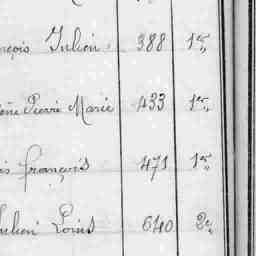 nçois Julien 388 1er
Pierre Marie 433 1er
is françois 471 1er
ulien Louis 640 2e